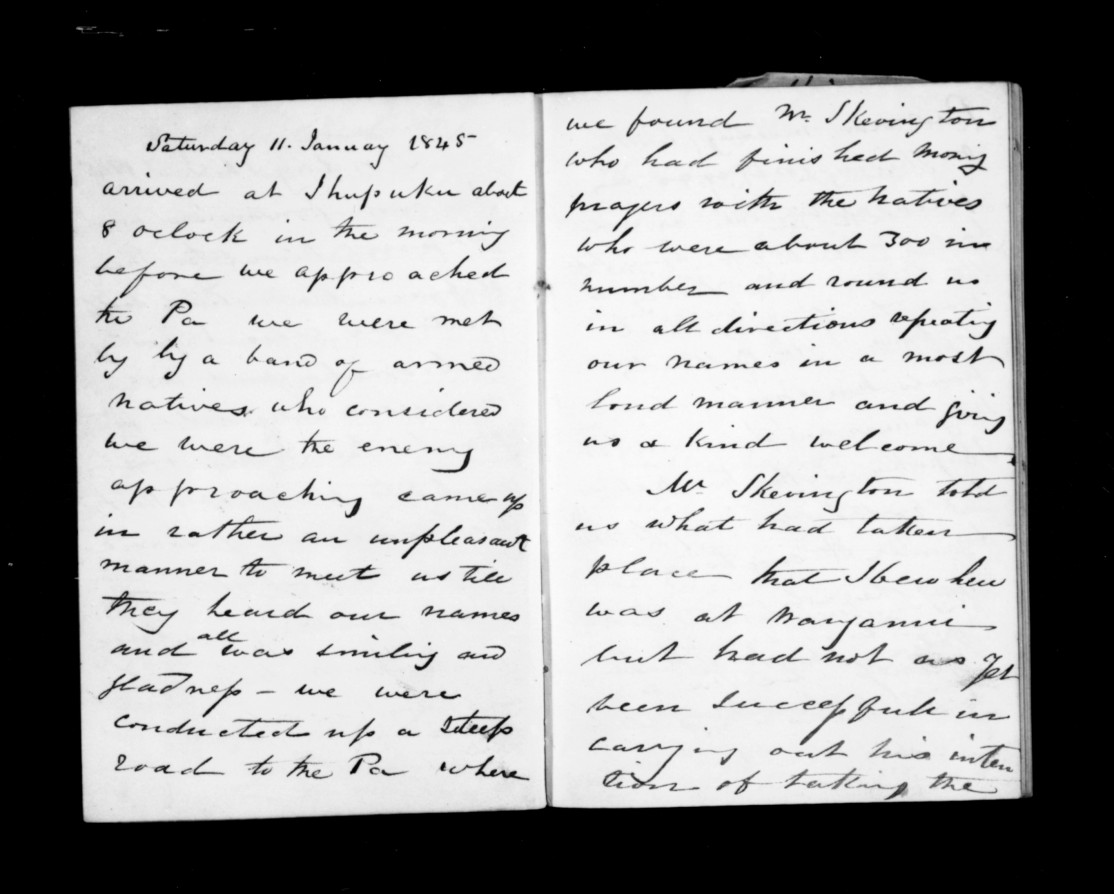 Saturday 11. January 1845
arrived at Ihupuku about
8 oclock in the morning
before we approached
the Pa we were met
by by a band of armed
natives who considered
we were the enemy
approaching came up
in rather an unpleasant
manner to meet us till
they heard our names
and all was smiling and
gladness - we were
conducted up a steep
road to the Pa where
we found Mr. Skevington
who had finished morning
prayers with the natives
who were about 300 in
number and round us
in all directions repeating
our names in a most
loud manner and giving
us a kind welcome
Mr Skevington told
us what had taken
place that
was at
but had not as yet
been successful in
carrying out his inten
tion of taking the